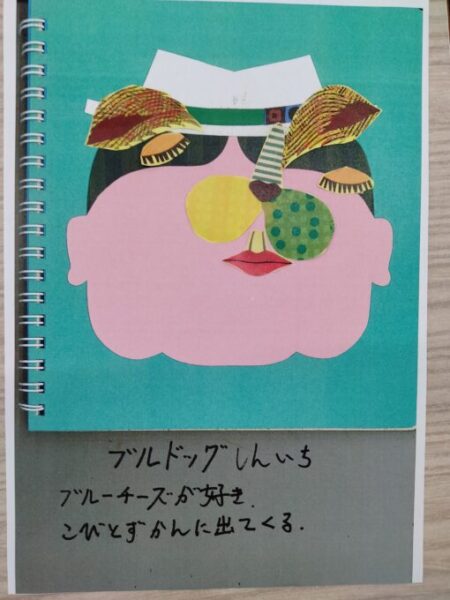 ブルドッグしんいち
ブルーチーズが好き.
こびとずかんに出てくる.